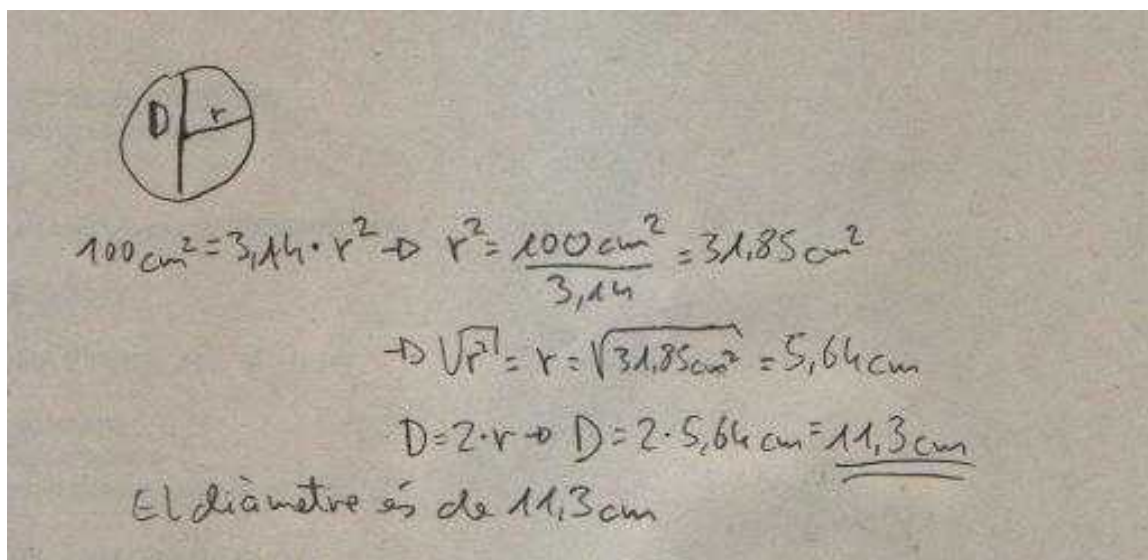 D r
100 cm² = 3,14 · r² → r² = 100 cm² / 3,14 = 31,85 cm²
→ √r² = r = √31,85 cm² = 5,64 cm
D = 2 · r → D = 2 · 5,64 cm = 11,3 cm
El diàmetre és de 11,3 cm